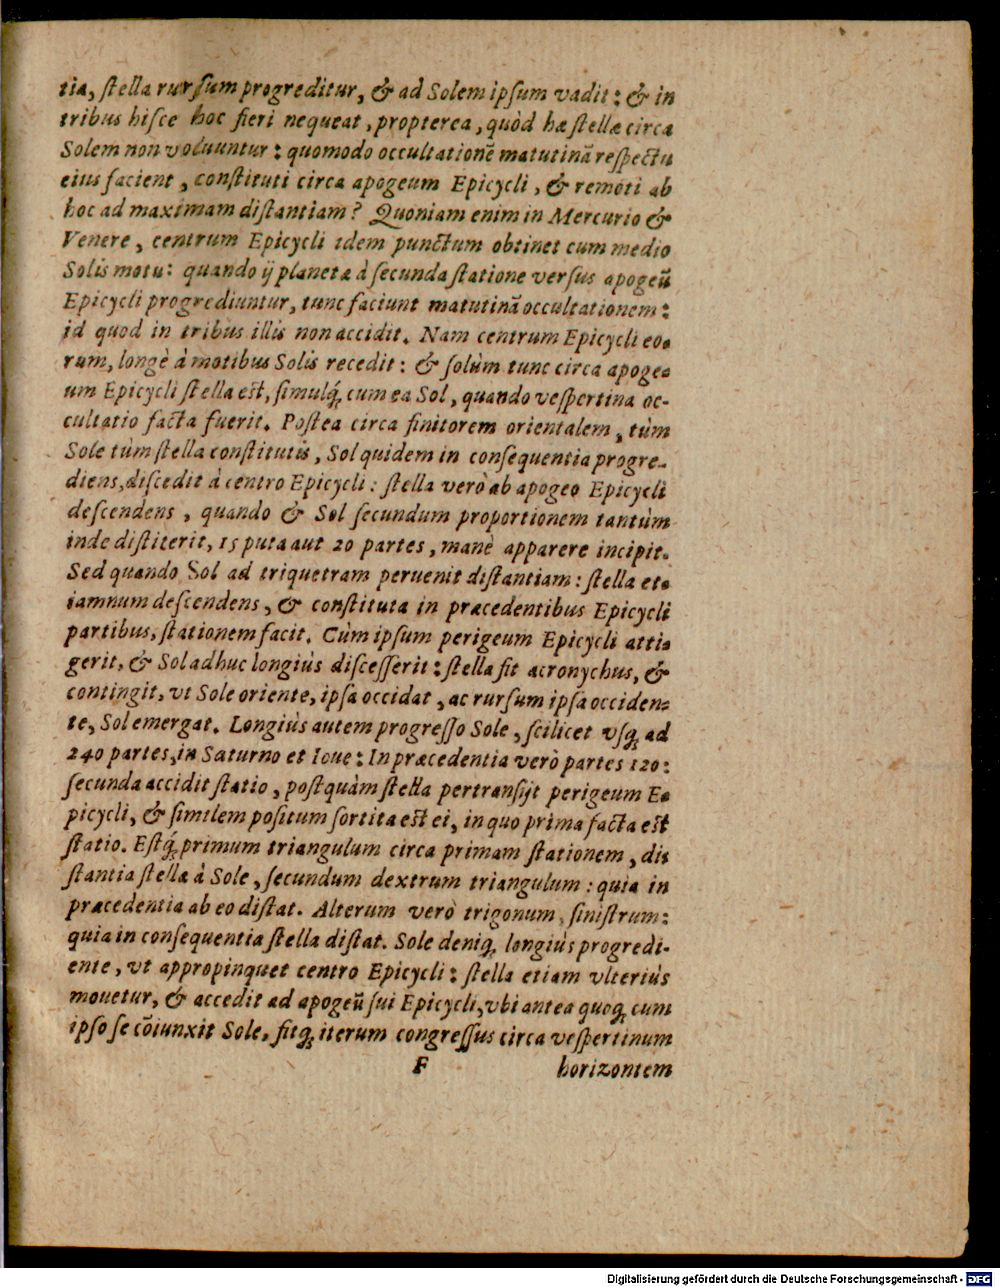 tia, ſtella rurſum progreditur, & ad Solem ipſum vadit: & in
tribus hiſce hoc fieri nequeat, propterea, quòd hæ ſtellæ circa
Solem non voluuntur: quomodo occultationē matutinā reſpectu
eius facient, conſtituti circa apogeum Epicycli, & remoti ab
hoc ad maximam diſtantiam? Quoniam enim in Mercurio &
Venere, centrum Epicycli idem punctum obtinet cum medio
Solis motu: quando ij planetæ à ſecunda ſtatione verſus apogeū
Epicycli progrediuntur, tunc faciunt matutinā occultationem:
id quod in tribus illis non accidit. Nam centrum Epicycli eo-
rum, longè à motibus Solis recedit: & ſolùm tunc circa apoge-
um Epicycli ſtella eſt, ſimulq́; cum ea Sol, quando veſpertina oc-
cultatio facta fuerit. Poſtea circa finitorem orientalem, tùm
Sole tùm ſtella conſtitutis, Sol quidem in conſequentia progre-
diens, diſcedit à centro Epicycli: ſtella verò ab apogeo Epicycli
deſcendens, quando & Sol ſecundum proportionem tantùm
inde diſtiterit, 15 puta aut 20 partes, manè apparere incipit.
Sed quando Sol ad triquetram peruenit diſtantiam: ſtella et-
iamnum deſcendens, & conſtituta in præcedentibus Epicycli
partibus, ſtationem facit. Cùm ipſum perigeum Epicycli atti-
gerit, & Sol adhuc longiùs diſceſſerit: ſtella fit acronychus, &
contingit, vt Sole oriente, ipſa occidat, ac rurſum ipſa occiden-
te, Sol emergat. Longiùs autem progreſſo Sole, ſcilicet vſq; ad
240 partes, in Saturno et Ioue: In præcedentia verò partes 120:
ſecunda accidit ſtatio, poſtquàm ſtella pertranſijt perigeum E-
picycli, & ſimilem poſitum ſortita eſt ei, in quo prima facta eſt
ſtatio. Eſtq́; primum triangulum circa primam ſtationem, di-
ſtantia ſtellæ à Sole, ſecundum dextrum triangulum: quia in
præcedentia ab eo diſtat. Alterum verò trigonum, ſiniſtrum:
quia in conſequentia ſtella diſtat. Sole deniq; longiùs progredi-
ente, vt appropinquet centro Epicycli: ſtella etiam vlteriùs
mouetur, & accedit ad apogeū ſui Epicycli, vbi antea quoq; cum
ipſo ſe cōiunxit Sole, fitq́; iterum congreſſus circa veſpertinum
F horizontem
Digitalisierung gefördert durch die Deutsche Forschungsgemeinschaft - DFG